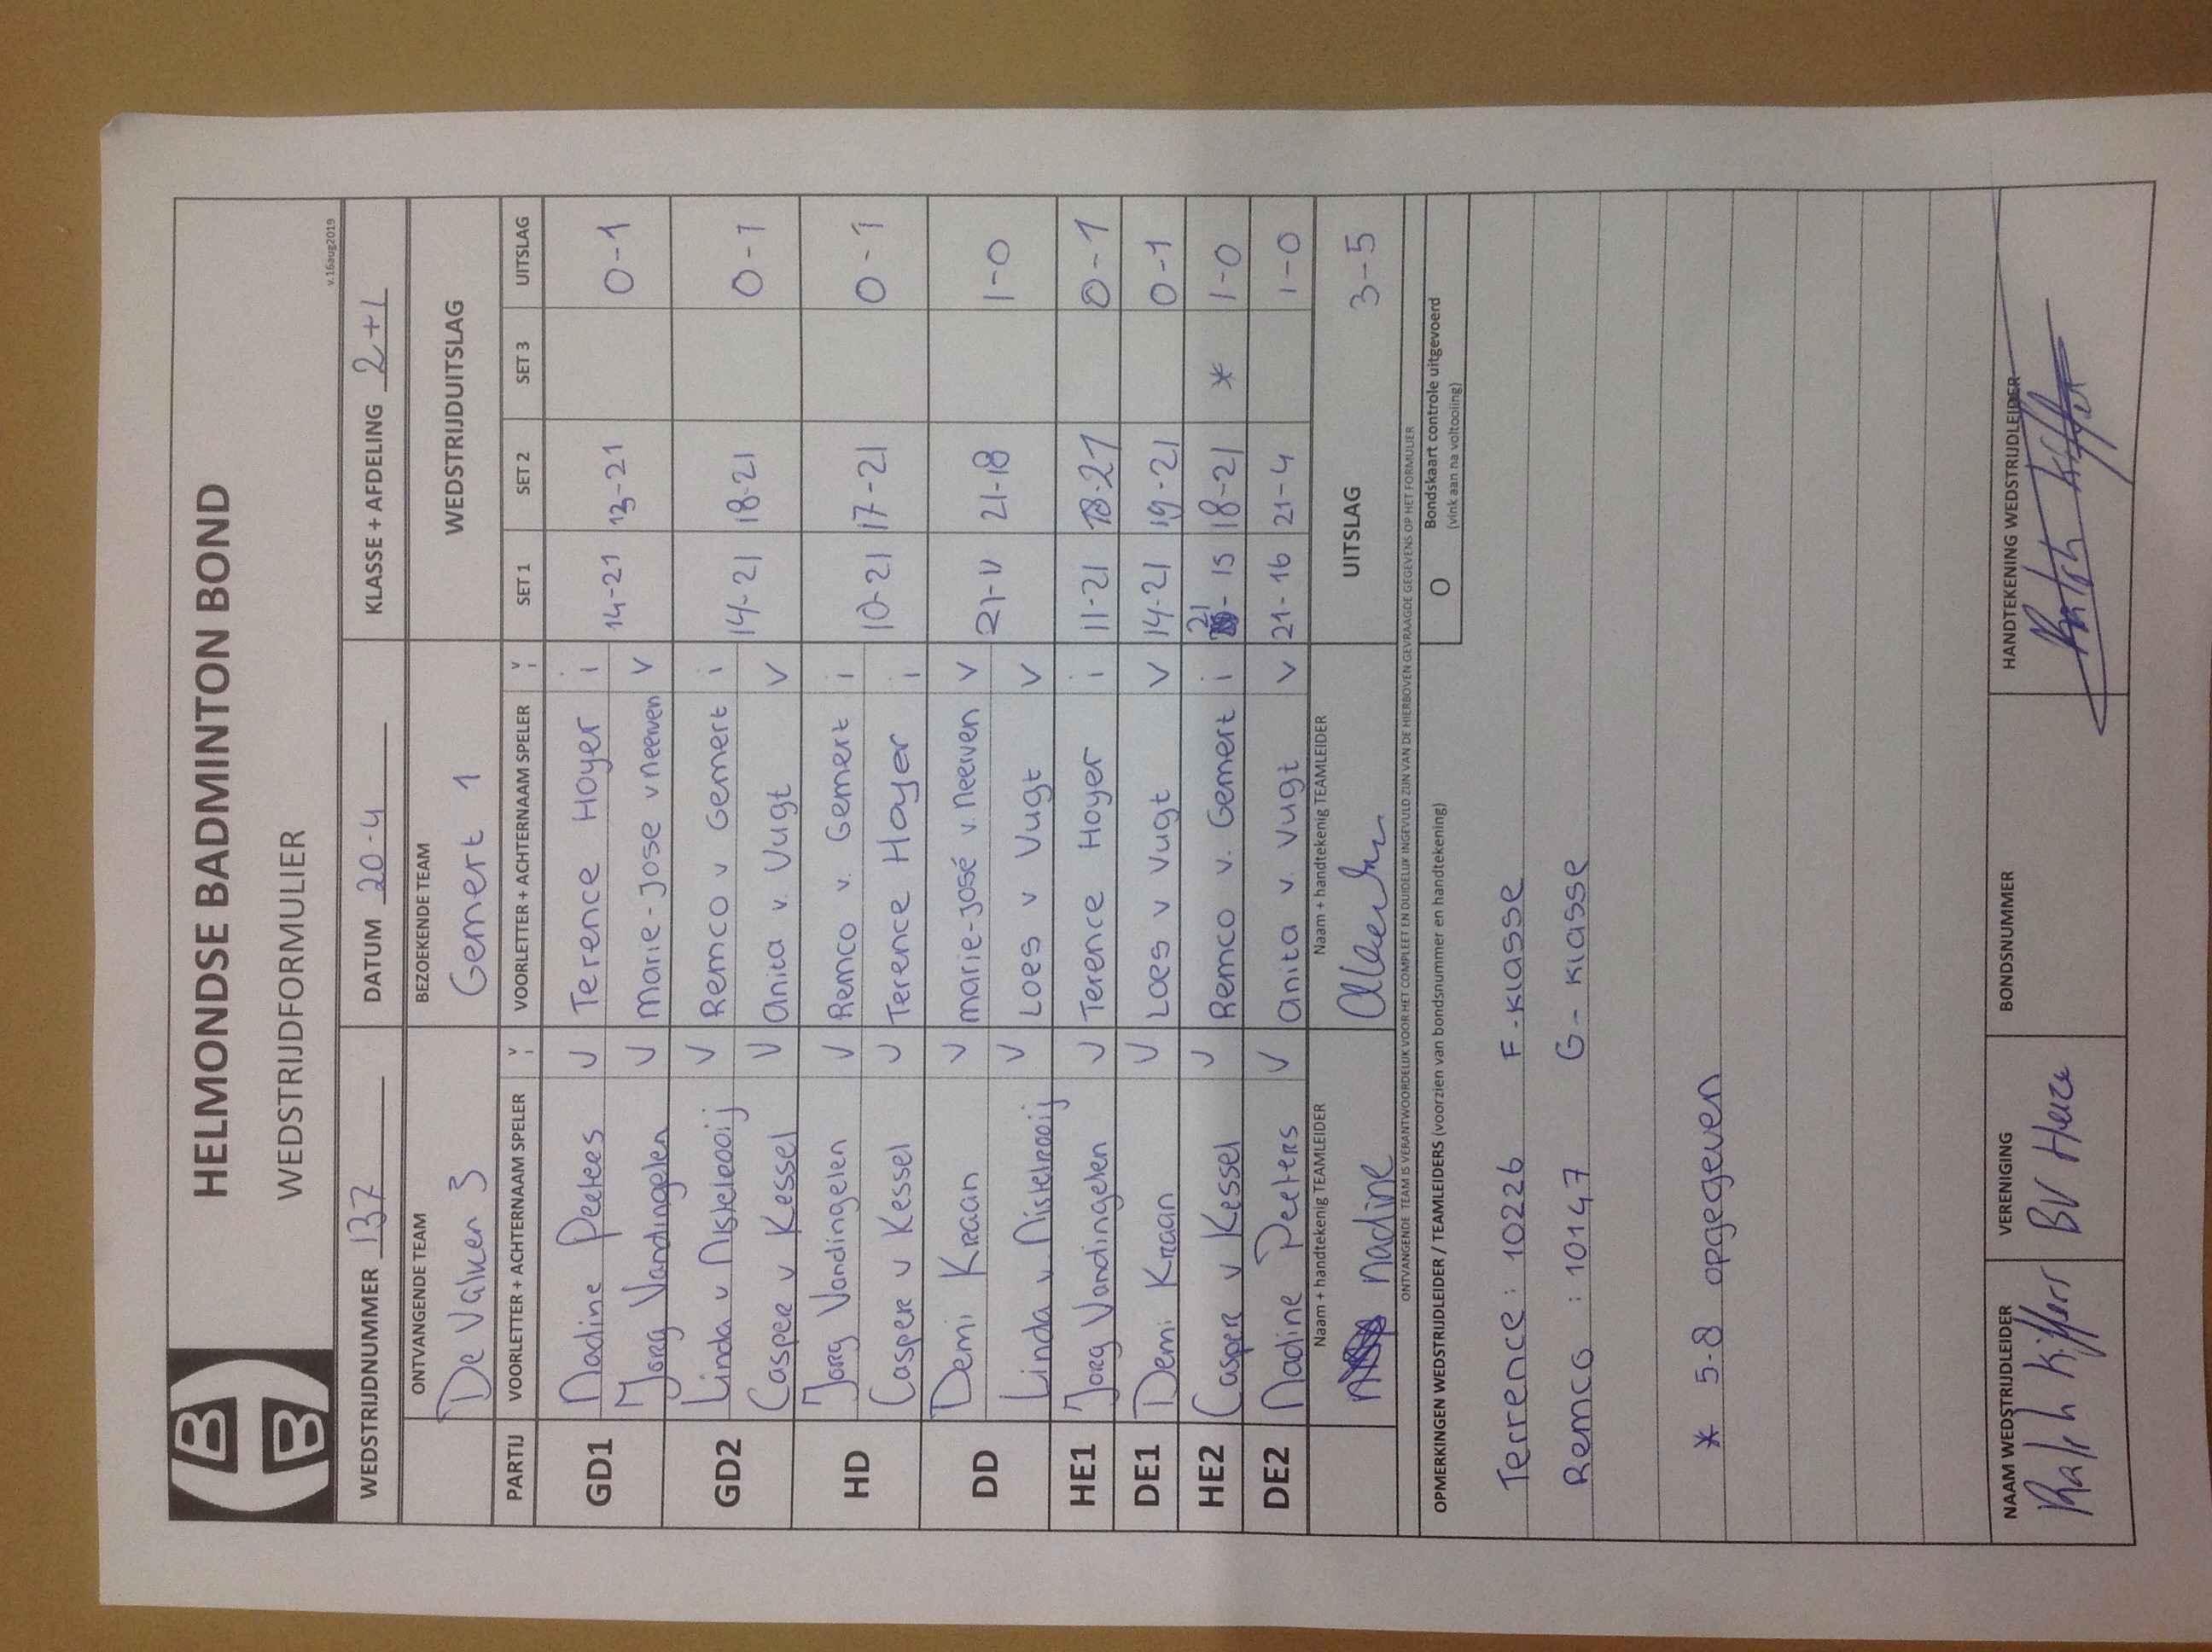 HELMONDSE BADMINTON BOND
WEDSTRIJDFORMULIER
v. 16aug2019
WEDSTRIJDNUMMER 137 DATUM 20-4 KLASSE + AFDELING 2+1
ONTVANGENDE TEAM BEZOEKENDE TEAM WEDSTRIJDUITSLAG
De Valken 3 Gemert 1
PARTIJ VOORLETTER + ACHTERNAAM SPELER V I VOORLETTER + ACHTERNAAM SPELER V I SET 1 SET 2 SET 3 UITSLAG
GD1 Nadine Peeters V Terence Hoyer i 14-21 13-21 0-1
Jorg Vandingelen V Marie-Jose v neerven V
GD2 Linda v Nistelrooij V Remco v Gemert i 14-21 18-21 0-1
Casper v Kessel V Anita v. Vugt V
HD Jorg Vandingelen V Remco v. Gemert i 10-21 17-21 0-1
Casper v Kessel V Terence Hoyer i
DD Demi Kraan V marie-josé v. neerven V 21-11 21-18 1-0
Linda v Nistelrooij V Loes v Vugt V
HE1 Jorg Vandingelen V Terence Hoyer i 11-21 18-21 0-1
DE1 Demi Kraan V Loes v Vugt V 14-21 19-21 0-1
HE2 Casper v Kessel V Remco v. Gemert i 21-15 18-21 * 1-0
DE2 Nadine Peeters V Anita v. Vugt V 21-16 21-4 1-0
Naam + handtekenig TEAMLEIDER Naam + handtekenig TEAMLEIDER UITSLAG 3-5
Nadine
ONTVANGENDE TEAM IS VERANTWOORDELIJK VOOR HET COMPLEET EN DUIDELIJK INGEVULD ZIJN VAN DE HIERBOVEN GEVRAAGDE GEGEVENS OP HET FORMULIER
OPMERKINGEN WEDSTRIJDLEIDER / TEAMLEIDERS (voorzien van bondsnummer en handtekening)
O Bondskaart controle uitgevoerd
(vink aan na voltooiing)
Terrence : 10226 F-klasse
Remco : 10147 G-klasse
* 5-8 opgegeven
NAAM WEDSTRIJDLEIDER VERENIGING BONDSNUMMER HANDTEKENING WEDSTRIJDLEIDER
Ralph Kiffers BV Heeze